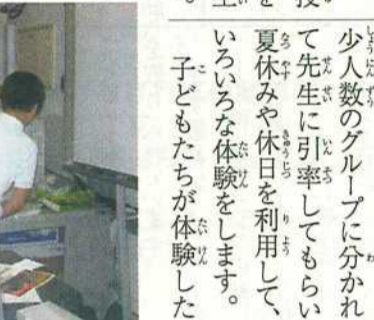 少人数のグループに分かれ
て先生に引率してもらい
夏休みや休日を利用して、
いろいろな体験をします。
子どもたちが体験した